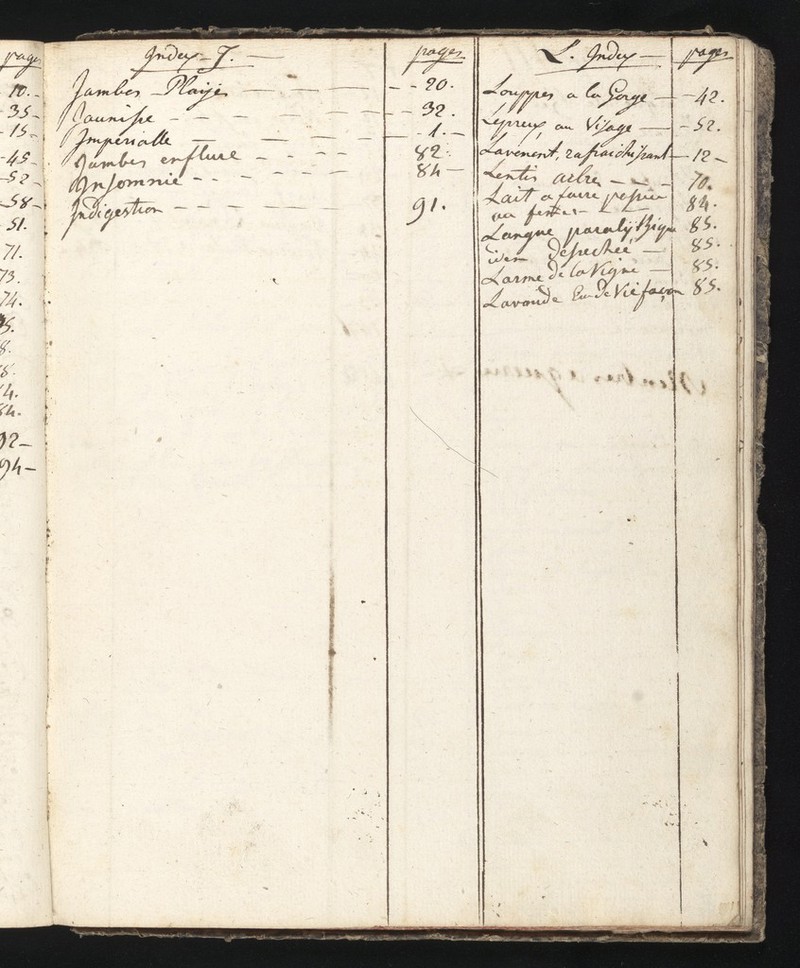 page
10.-
-35-
-15-
-45-
-52-
-58-
51.
71.
73.
74.
8.
8.
4.
84.
92-
94-
Index - J. - pages
Jambes Plaijes - - - - 20.
Jaunisse - - - - 32.
Imperialle - - - - 1. -
Jambes enflure - - - 82.
Insomnie - - - - - 84 -
Indigestion - - - - - 91.
L. Index - pages
Louppes a la Gorge - - 42.
Lepreux, au Visage - - 52.
Lavement, rafraichissant - 12 -
Lentis arbre - - - 70.
Lait a faire passer
au femmes - - 84.
Langue paralijtique 85.
idem dessechee - 85.
Larme de la Vigne - 85.
Lavande Eau de Vie façon 85.